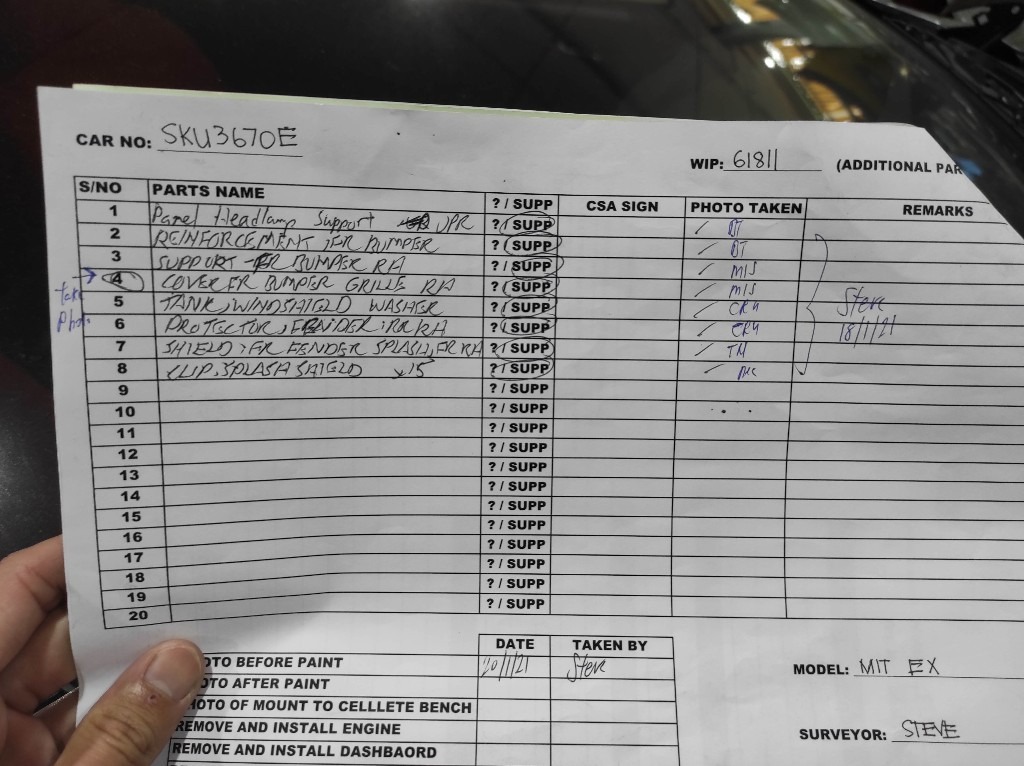 CAR NO: SKU3670E
WIP: 61811 (ADDITIONAL PAR
S/NO PARTS NAME ? / SUPP CSA SIGN PHOTO TAKEN REMARKS
1 Panel Headlamp Support UPR ? / SUPP / BT
2 REINFORCEMENT, FR BUMPER ? / SUPP / BT
3 SUPPORT FR BUMPER RA ? / SUPP / MIS
4 COVER FR BUMPER GRILLE RA ? / SUPP / MIS
take photo
5 TANK, WINDSHIELD WASHER ? / SUPP / CRH
Steve
6 PROTECTOR, FENDER, RR RA ? / SUPP / CRH
18/1/21
7 SHIELD, FR FENDER SPLASH, FR RA ? / SUPP / TM
8 CLIP, SPLASH SHIELD x15 ? / SUPP /
9 ? / SUPP
10 ? / SUPP
11 ? / SUPP
12 ? / SUPP
13 ? / SUPP
14 ? / SUPP
15 ? / SUPP
16 ? / SUPP
17 ? / SUPP
18 ? / SUPP
19 ? / SUPP
20
DATE TAKEN BY
OTO BEFORE PAINT 20/1/21 Steve
OTO AFTER PAINT
HOTO OF MOUNT TO CELLLETE BENCH
REMOVE AND INSTALL ENGINE
REMOVE AND INSTALL DASHBAORD
MODEL: MIT EX
SURVEYOR: STEVE